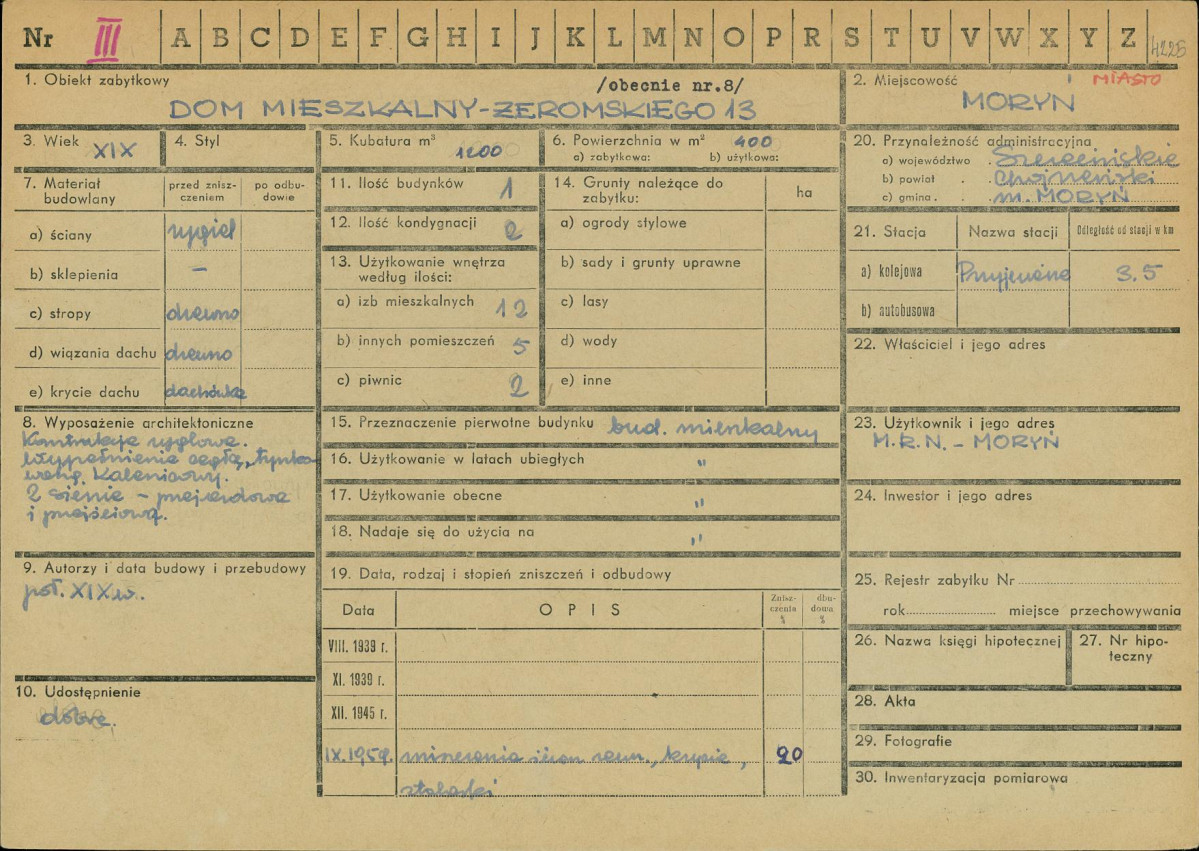 Nr III A B C D E F G H I J K L M N O P R S T U V W X Y Z 4225
1. Obiekt zabytkowy /obecnie nr.8/
DOM MIESZKALNY-ŻEROMSKIEGO 13
2. Miejscowość MIASTO
MORYŃ
3. Wiek XIX
4. Styl
5. Kubatura m³ 1200
6. Powierzchnia w m² 400
a) zabytkowa: b) użytkowa:
20. Przynależność administracyjna
a) województwo Szczecińskie
b) powiat Chojneński
c) gmina m. MORYŃ
7. Materiał budowlany
przed zniszczeniem
po odbudowie
a) ściany rygiel
b) sklepienia –
c) stropy drewno
d) wiązania dachu drewno
e) krycie dachu dachówka
11. Ilość budynków 1
12. Ilość kondygnacji 2
13. Użytkowanie wnętrza
według ilości:
a) izb mieszkalnych 12
b) innych pomieszczeń 5
c) piwnic 2
14. Grunty należące do
zabytku: ha
a) ogrody stylowe
b) sady i grunty uprawne
c) lasy
d) wody
e) inne
21. Stacja Nazwa stacji Odległość od stacji w km
a) kolejowa 3.5
b) autobusowa
22. Właściciel i jego adres
8. Wyposażenie architektoniczne
Konstrukcja ryglowa.
Wypełnienie cegłą,
2 sienie – przejazdowa
i przejściowa.
15. Przeznaczenie pierwotne budynku bud. mieszkalny
16. Użytkowanie w latach ubiegłych "
17. Użytkowanie obecne "
18. Nadaje się do użycia na "
23. Użytkownik i jego adres
M.R.N. – MORYŃ
24. Inwestor i jego adres
9. Autorzy i data budowy i przebudowy
poł. XIX w.
10. Udostępnienie
dobre.
19. Data, rodzaj i stopień zniszczeń i odbudowy
Data OPIS Zniszczenia % dbudowa %
VIII. 1939 r.
XI. 1939 r.
XII. 1945 r.
IX. 1959. zniszczenia 20
25. Rejestr zabytku Nr
rok miejsce przechowywania
26. Nazwa księgi hipotecznej
27. Nr hipoteczny
28. Akta
29. Fotografie
30. Inwentaryzacja pomiarowa